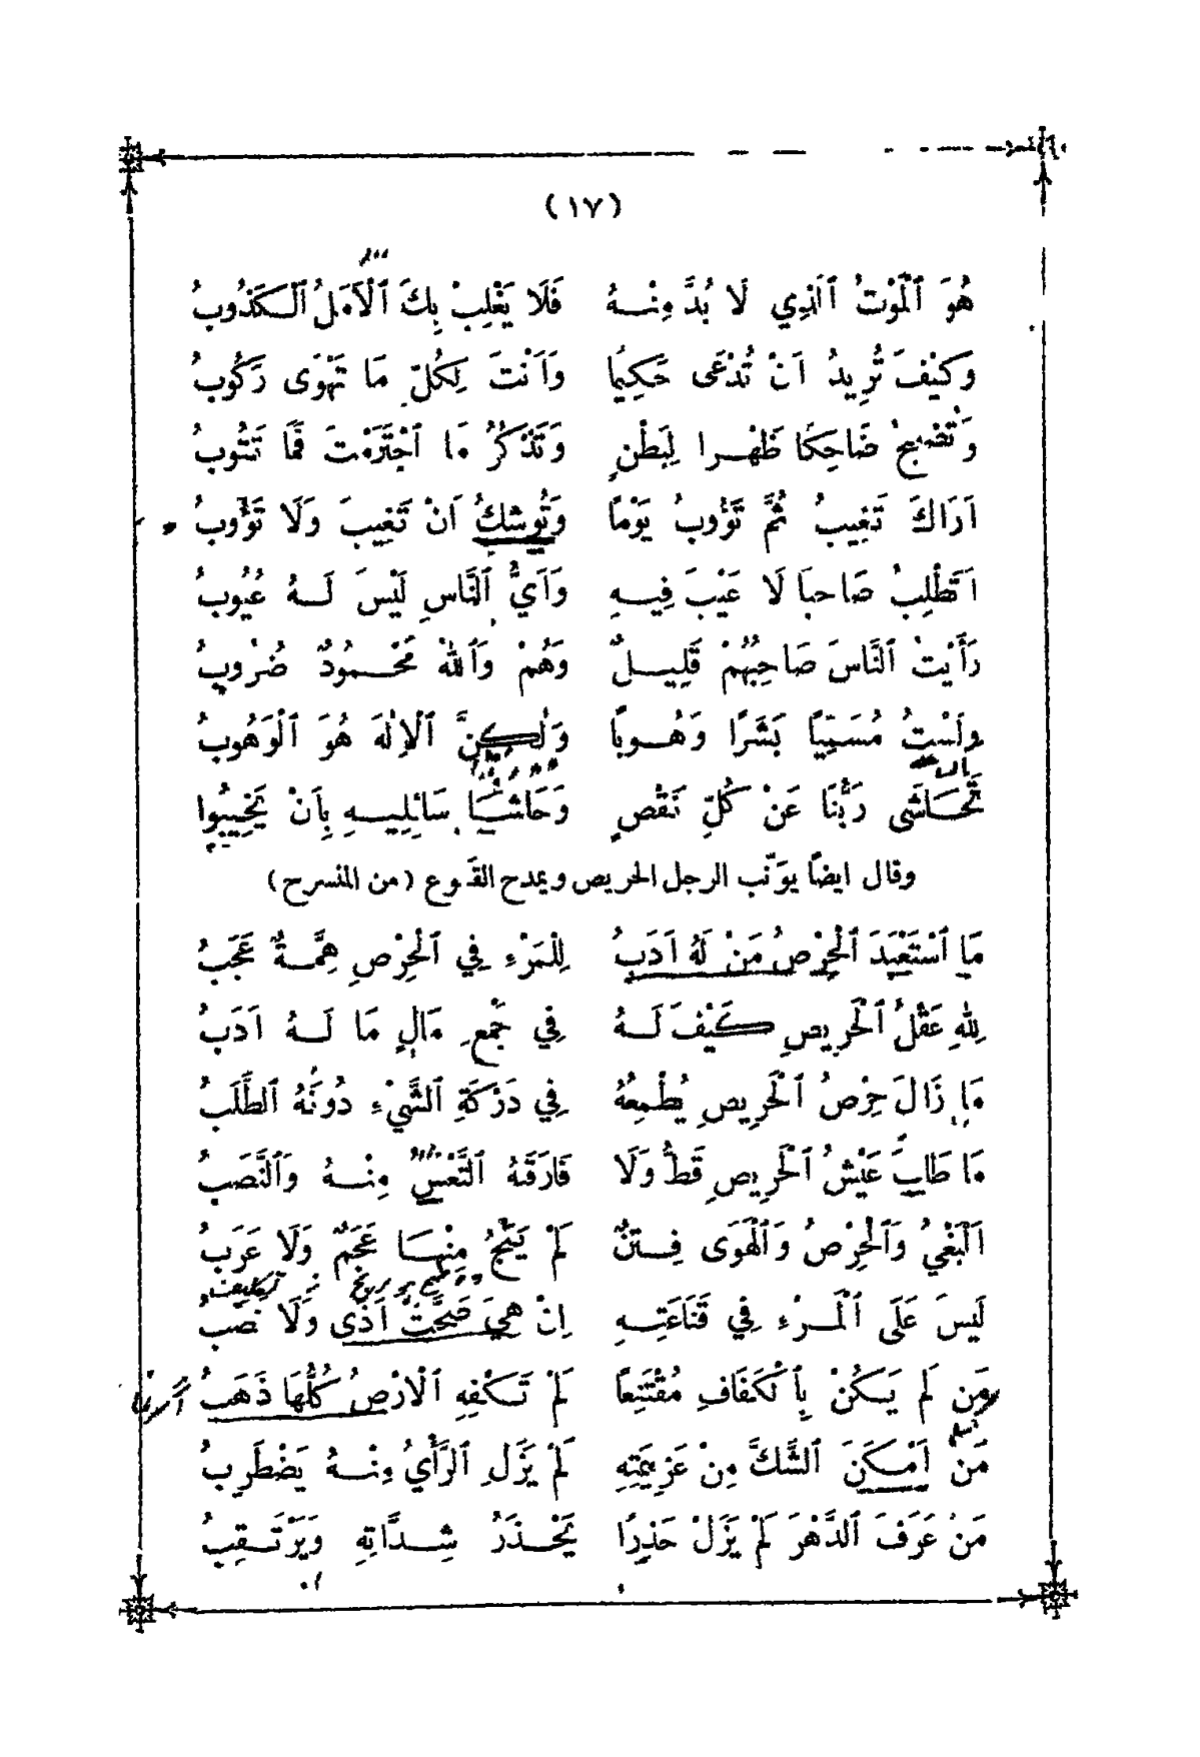 (١٧)
هُوَ ٱلْمَوْتُ ٱلَّذِي لَا بُدَّ مِنْهُ فَلَا يَغْلِبْ بِكَ ٱلْأَمَلُ ٱلْكَذُوبُ
وَكَيْفَ تُرِيدُ اَنْ تُدْعَى حَكِيمًا وَاَنْتَ لِكُلِّ مَا تَهْوَى رَكُوبُ
وَتُصْبِحُ ضَاحِكًا ظَهْرا لِبَطْنٍ وَتَذْكُرُ مَا ٱجْتَرَمْتَ فَمَا تَتُوبُ
اَرَاكَ تَغِيبُ ثُمَّ تَؤُوبُ يَوْمًا وَتُوشِكُ اَنْ تَغِيبَ وَلَا تَؤُوبُ
اَتَطْلِبُ صَاحِبَا لَا عَيْبَ فِيهِ وَاَيُّ ٱلنَّاسِ لَيْسَ لَهُ عُيُوبُ
رَأَيْتُ ٱلنَّاسَ صَاحِبُهُمْ قَلِيلٌ وَهُمْ وَٱللهُ مَحْمُودٌ ضُرُوبُ
وَلَسْتُ مُسَمِّيًا بَشَرًا وَهُوبًا وَلٰكِنَّ ٱلْإِلٰهَ هُوَ ٱلْوَهُوبُ
تَحَاشَى رَبُّنَا عَنْ كُلِّ نَقْصٍ وَحَاشَا سَائِلِيهِ بِاَنْ يَخِيبُوا
وقال ايضًا يوَنّب الرجل الحريص ويمدح القَنوع (من المنسرح)
مَا ٱسْتَعْبَدَ ٱلْحِرْصُ مَنْ لَهُ اَدَبُ لِلْمَرْءِ فِي ٱلْحِرْصِ هِمَّةٌ عَجَبُ
لِلهِ عَقْلُ ٱلْحَرِيصِ كَيْفَ لَهُ فِي جَمْعِ مَالٍ مَا لَهُ اَدَبُ
مَا زَالَ حِرْصُ ٱلْحَرِيصِ يُطْمِعُهُ فِي دَرْكَةِ ٱلشَّيْءِ دُونَهُ ٱلطَّلَبُ
مَا طَابَ عَيْشُ ٱلْحَرِيصِ قَطُّ وَلَا فَارَقَهُ ٱلتَّعْسُ مِنْهُ وَٱلنَّصَبُ
اَلْبَغْيُ وَٱلْحِرْصُ وَٱلْهَوَى فِتَنٌ لَمْ يَنْجُ مِنْهَا عَجَمٌ وَلَا عَرَبُ
لَيسَ عَلَى ٱلْمَرْءِ فِي قَنَاعَتِهِ اِنْ هِيَ صَحَّتْ اَذًى وَلَا نَصَبُ
مَن لَم يَكُنْ بِٱلْكَفَافِ مُقْتَنِعًا لَمْ تَكْفِهِ ٱلْاَرْضُ كُلُّهَا ذَهَبُ
مَنْ اَمْكَنَ ٱلشَّكَّ مِنْ عَزِيمَتِهِ لَمْ يَزَلِ ٱلرَّأْيُ مِنْهُ يَضْطَرِبُ
مَنْ عَرَفَ ٱلدَّهْرَ لَمْ يَزَلْ حَذِرًا يَحْذَرُ شِدَّاتِهِ وَيَرْتَقِبُ